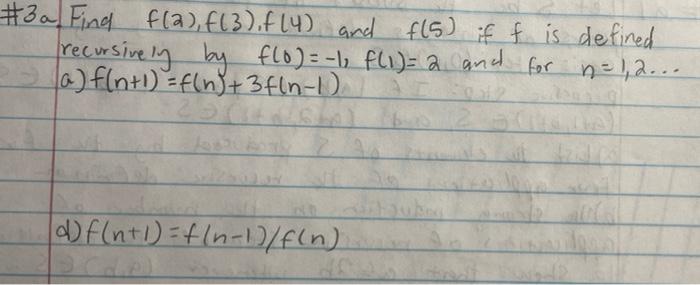 #3a Find f(2), f(3), f(4) and f(5) if f is defined
recursively by f(0)=-1, f(1)=2 and for n=1,2...
a) f(n+1)=f(n)+3f(n-1)
d) f(n+1)=f(n-1)/f(n)